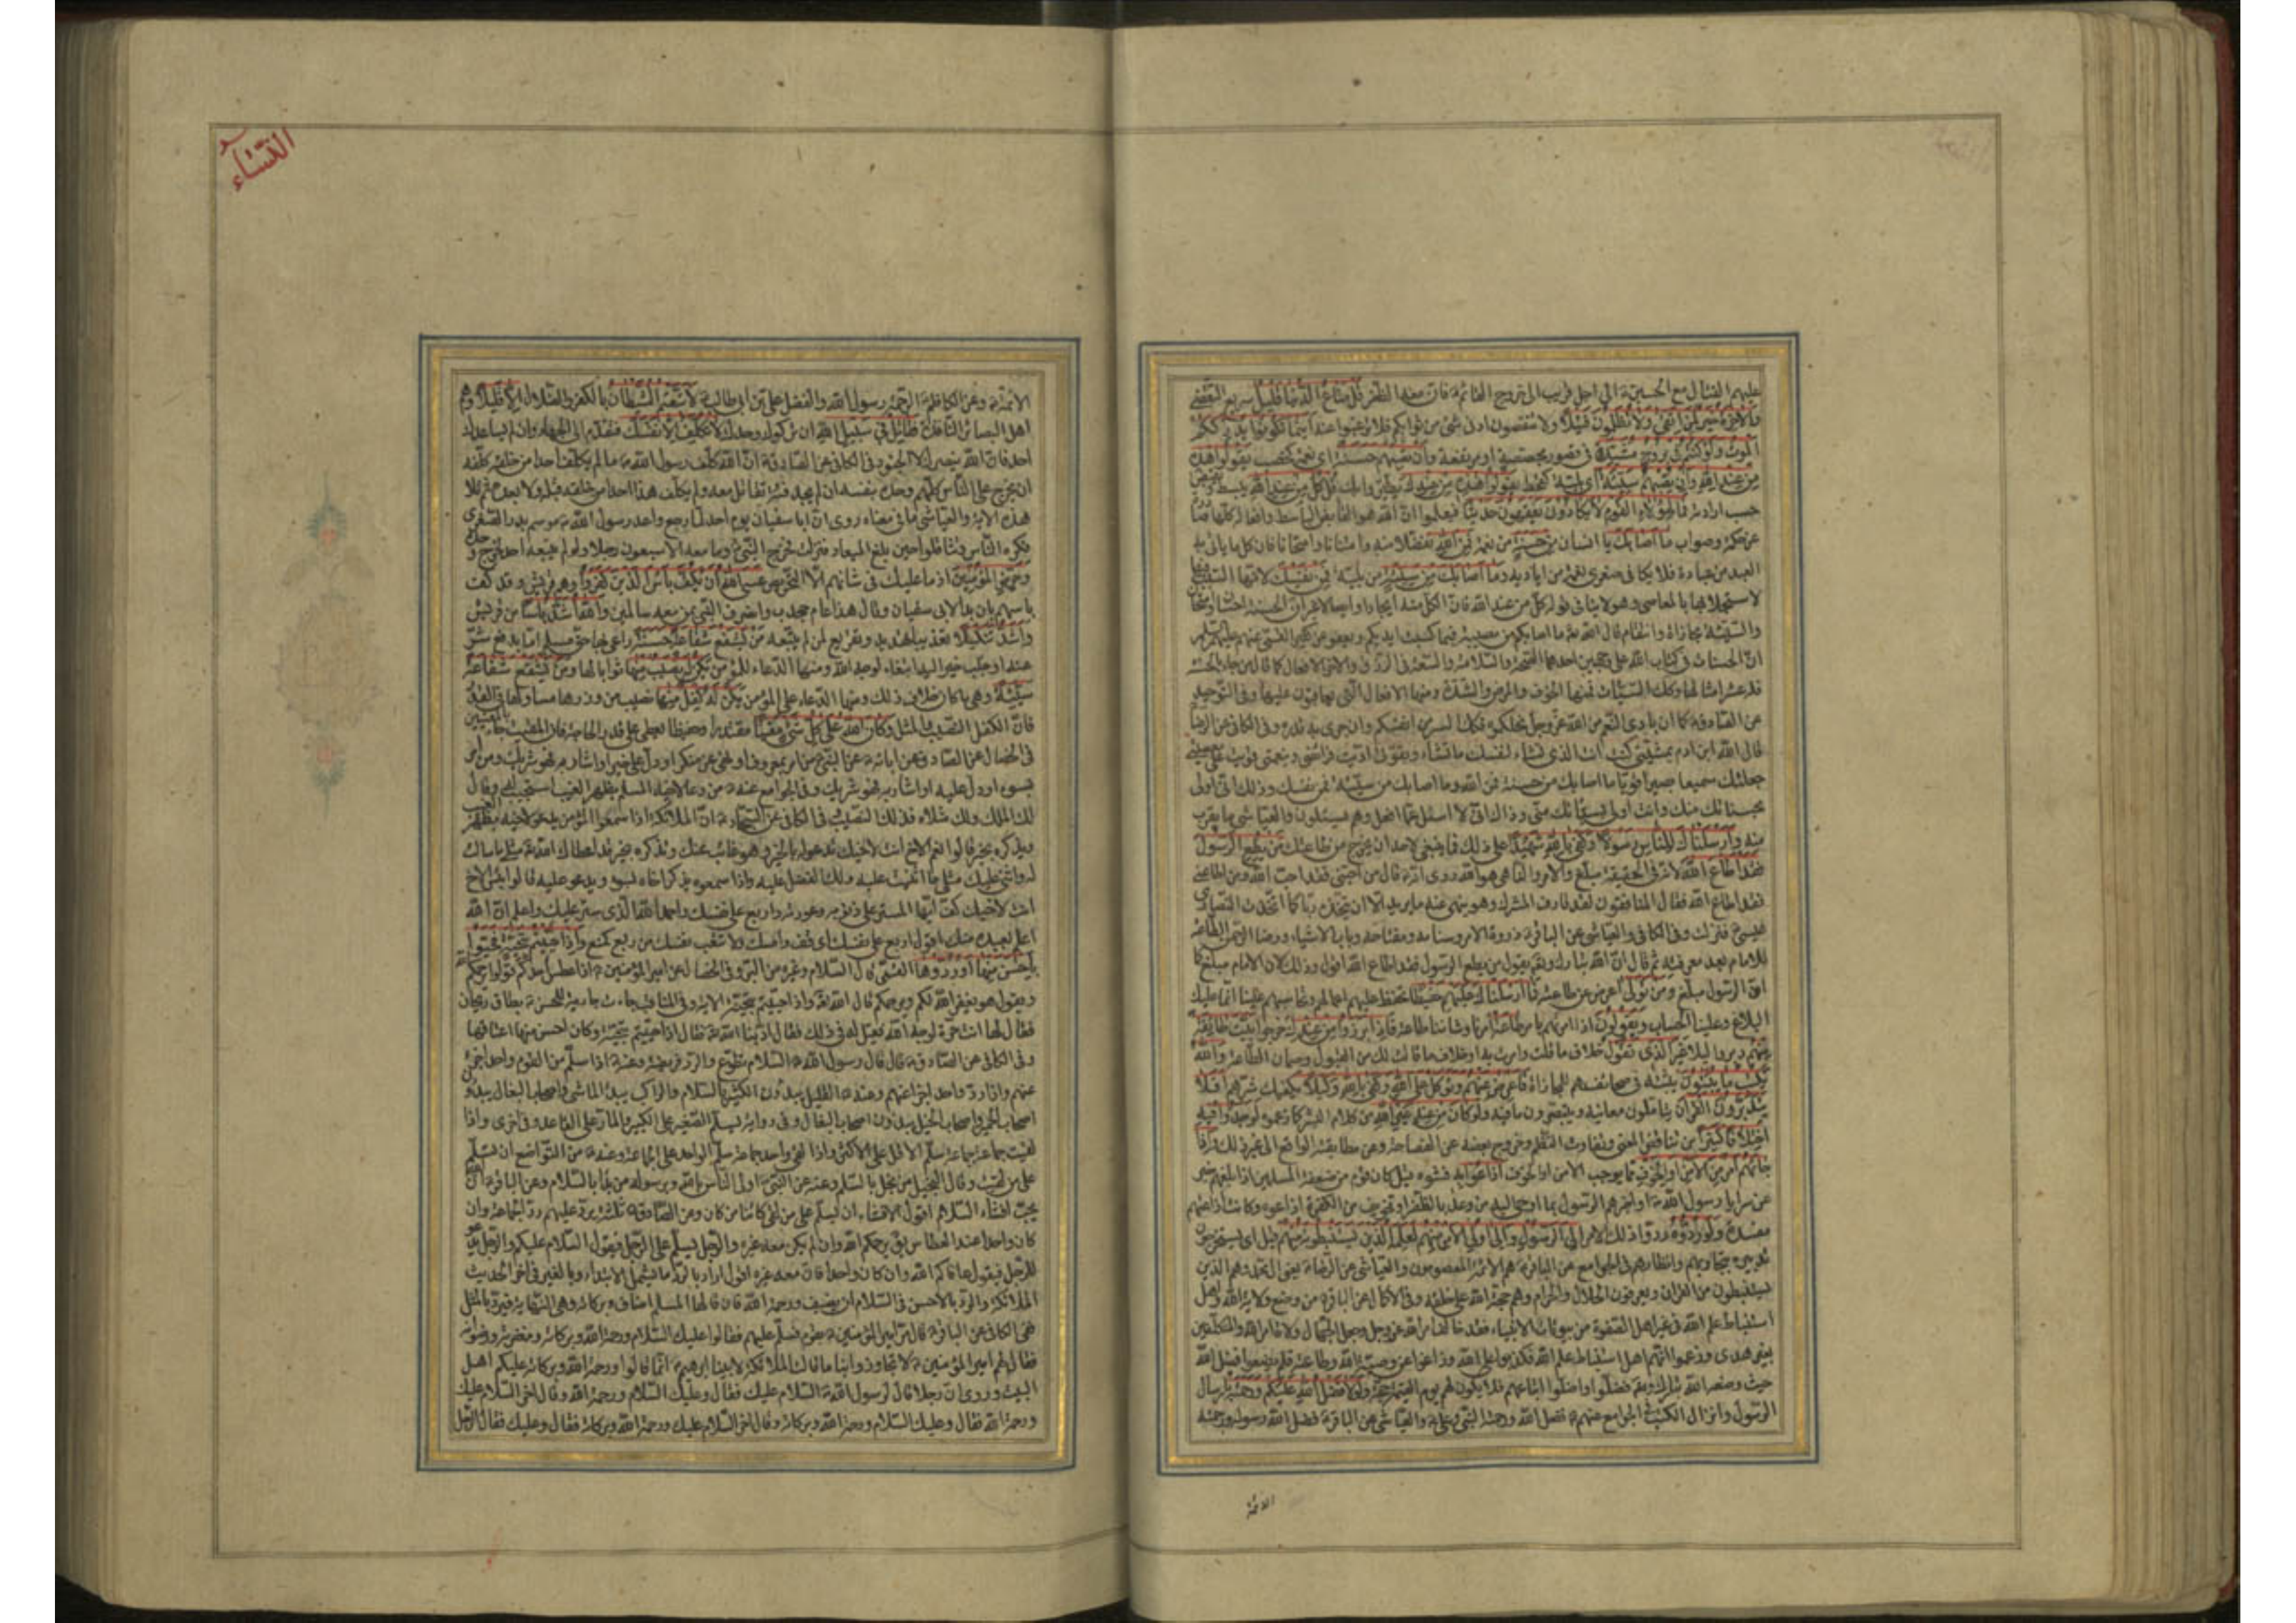 عليهم القتال مع الحسين ع الى اجل قريب الى خروج القائم ع فان معه الظفر قل متاع الدنيا قليل سريع التقضي
والآخرة خير لمن اتقى ولا تظلمون فتيلا ولا تنقصون ادنى شئ من ثوابكم فلا ترغبوا عنه اينما تكونوا يدرككم
الموت ولو كنتم في بروج مشيدة في قصور مجصصة او مرتفعة وان تصبهم حسنة اي نعمة كخصب يقولوا هذه
من عند الله وان تصبهم سيئة اي بلية كقحط يقولوا هذه من عندك قل كل من عند الله يبسط ويقبض
حسب ارادته فمال هؤلاء القوم لا يكادون يفقهون حديثا فيعلموا ان الله هو القابض الباسط وافعاله كلها
عن حكمة وصواب ما اصابك يا انسان من حسنة من نعمة فمن الله تفضلا منه وامتنانا وامتحانا فان كل ما ياتى به
العبد من عبادة فلا يكافى صغرى نعمة من اياديه وما اصابك من سيئة من بلية فمن نفسك لانها السبب فيها
لاستجلابها بالمعاصي وهو لا ينافى قوله كل من عند الله فان الكل منه ايجادا وايصالا غير ان الحسنة احسان وامتحان
والسيئة مجازاة وانتقام قال الله تعالى ما اصابكم من مصيبة فبما كسبت ايديكم ويعفو عن كثير القمي عنهم عليهم السلم
ان الحسنات فى كتاب الله على وجهين احدهما الصحة والسلامة والسعة فى الرزق والاخر الافعال كما قال من جاء بالحسنة
فله عشر امثالها وكذلك السيئات فمنها الخوف والمرض والشدة ومنها الافعال التي يعاقبون عليها وفى التوحيد
عن الصادق ع كما ان بادى النعم من الله عز وجل نحلكموه فكذلك الشر من انفسكم وان جرى به قدره وفى الكافي عن الرضا
قال الله ابن ادم بمشيتى كنت انت الذى تشاء لنفسك ما تشاء وبقوتى اديت فرائضى وبنعمتى قويت على معصيتي
جعلتك سميعا بصيرا قويا ما اصابك من حسنة فمن الله وما اصابك من سيئة فمن نفسك وذلك انى اولى
بحسناتك منك وانت اولى بسيئاتك منى وذاك انى لا اسئل عما افعل وهم يسئلون والعياشي ما يقرب
منه وارسلناك للناس رسولا وكفى بالله شهيدا على ذلك فما ينبغى لاحد ان يخرج من طاعتك من يطع الرسول
فقد اطاع الله لانه فى الحقيقة مبلغ والامر والناهي هو الله روى انه قال من احبنى فقد احب الله ومن اطاعنى
فقد اطاع الله فقال المنافقون لقد قارف الشرك وهو ينهى عنه ما يريد الا ان نتخذه ربا كما اتخذت النصارى
عيسى فنزلت وفى الكافي والعياشي عن الباقر ع ذروة الامر وسنامه ومفتاحه وباب الاشياء ورضا الرحمن الطاعة
للامام بعد معرفته ثم قال ان الله تبارك وتعالى يقول من يطع الرسول فقد اطاع الله اقول وذلك لان الامام مبلغ كما
ان الرسول مبلغ ومن تولى اعرض عن طاعته فما ارسلناك عليهم حفيظا تحفظ عليهم اعمالهم وتحاسبهم عليها انما عليك
البلاغ وعلينا الحساب ويقولون اذا امرتهم بامر طاعة امرنا وشاننا طاعة فاذا برزوا من عندك خرجوا بيت طائفة
منهم دبروا ليلا غير الذى تقول خلاف ما قلت وامرت به او خلاف ما قالت لك من القبول وضمان الطاعة والله
يكتب ما يبيتون يثبته فى صحائفهم للمجازاة فاعرض عنهم وتوكل على الله وكفى بالله وكيلا يكفيك شرهم افلا
يتدبرون القرآن يتأملون معانيه ويتبصرون ما فيه ولو كان من عند غير الله من كلام البشر كما زعموه لوجدوا فيه
اختلافا كثيرا من تناقض المعنى وتفاوت النظم وخروج بعضه عن الفصاحة وعن مطابقة الواقع الى غير ذلك واذا
جائهم امر من الامن او الخوف مما يوجب الامن او الخوف اذاعوا به افشوه قيل كان قوم من ضعفة المسلمين اذا بلغهم خبر
عن سرايا رسول الله ص او اخبرهم الرسول بما اوحى اليه من وعد بالظفر او تخويف من الكفرة اذاعوه وكانت اذاعتهم
مفسدة ولو ردوه ردوا ذلك الامر الى الرسول والى اولي الامر منهم لعلمه الذين يستنبطونه منهم قيل اى يستخرجون
تدبيره بتجاربهم وانظارهم فى الجوامع عن الباقر ع هم الائمة المعصومون والعياشي عن الرضا ع يعنى ال محمد وهم الذين
يستنبطون من القران ويعرفون الحلال والحرام وهم حجة الله على خلقه وفى الاكمال عن الباقر ع من وضع ولاية الله واهل
استنباط علم الله فى غير اهل الصفوة من بيوتات الانبياء فقد خالف امر الله عز وجل وجعل الجهال ولاة امر الله والمتكلفين
بغير هدى وزعموا انهم اهل استنباط علم الله فكذبوا على الله وزاغوا عن وصية الله وطاعته فلم يضعوا فضل الله
حيث وضعه الله تبارك وتعالى فضلوا واضلوا اتباعهم فلا يكون لهم يوم القيمة حجة ولولا فضل الله عليكم ورحمته بارسال
الرسول وانزال الكتب فى الجوامع عنهم ع فضل الله ورحمته النبى وعلى ع والعياشي عن الباقر ع فضل الله رسوله ورحمته
الائمة
النساء
الائمة ع وعن الكاظم ع الرحمة رسول الله والفضل على بن ابى طالب ع لاتبعتم الشيطان بالكفر والضلال الا قليلا وهم
اهل البصائر النافذة فقاتل فى سبيل الله ان تركوك وحدك لا تكلف الا نفسك فتقدم الى الجهاد وان لم يساعدك
احد فان الله ينصرك لا الجنود فى الكافي عن الصادق ع ان الله كلف رسول الله ص ما لم يكلف احدا من خلقه كلفه
ان يخرج على الناس كلهم وحده بنفسه ان لم يجد فئة تقاتل معه ولم يكلف هذا احدا من خلقه قبله ولا بعده ثم تلا
هذه الاية والعياشي ما فى معناه روى ان ابا سفيان يوم احد لما رجع واعد رسول الله ص موسم بدر الصغرى
فكره الناس وتثاقلوا حين بلغ الميعاد فنزلت فخرج النبى ص وما معه الا سبعون رجلا ولو لم يتبعه احد لخرج وحده
وحرض المؤمنين اذ ما عليك فى شانهم الا التحريص عسى الله ان يكف بأس الذين كفروا وهم قريش وقد كف
باسهم بان بدا لابى سفيان وقال هذا عام مجدب وانصرف النبى بمن معه سالمين والله اشد باسا من قريش
واشد تنكيلا تعذيبا تهديد وتقريع لمن لم يتبعه من يشفع شفاعة حسنة راعى بها حق مسلم اما بدفع شر
عنه او جلب خير اليه ابتغاء لوجه الله ومنها الدعاء للمؤمن يكن له نصيب منها ثوابا لها ومن يشفع شفاعة
سيئة وهى ما كان خلاف ذلك ومنها الدعاء على المؤمن يكن له كفل منها نصيب من وزرها مساو لها فى القدر
فان الكفل النصيب المثل وكان الله على كل شئ مقيتا مقتدرا وحفيظا يعطى على قدر الحاجة
فى الخصال عن الصادق عن ابائه ع عن النبى ص من امر بمعروف او نهى عن منكر او دل على خير او اشار به فهو شريك ومن امر
بسوء او دل عليه او اشار به فهو شريك وفى الجوامع عنه ع من دعا لاخيه المسلم بظهر الغيب استجيب له وقال
لك الملك ولك مثلاه فذلك النصيب فى الكافي عن السجاد ع ان الملائكة اذا سمعوا المؤمن يدعو لاخيه بظهر الغيب
ويذكره بخير قالوا نعم الاخ انت لاخيك تدعو له بالخير وهو غائب عنك وتذكره بخير قد اعطاك الله تعالى مثلى ما سالت
له واثنى عليك مثلى ما اثنيت عليه ولك الفضل عليه واذا سمعوه يذكر اخاه بسوء ويدعو عليه قالوا بئس الاخ
انت لاخيك كف ايها المستر على ذنوبه وعورته واربع على نفسك واحمد الله الذى ستر عليك واعلم ان الله
اعلم بعبده منك اقول اربع على نفسك اى قف وامسك ولا تتعب نفسك من ربع كمنع واذا حييتم بتحية فحيوا
باحسن منها او ردوها القمي قال السلام وغيره من البر وفى الخصال عن امير المؤمنين ع اذا عطس احدكم قولوا يرحمكم الله
ويقول هو يغفر الله لكم ويرحمكم قال الله تعالى واذا حييتم بتحية الاية وفى المناقب جاءت جارية للحسن ع بطاق ريحان
فقال لها انت حرة لوجه الله فقيل له فى ذلك فقال ادبنا الله تعالى فقال اذا حييتم بتحية وكان احسن منها اعتاقها
وفى الكافي عن الصادق ع قال قال رسول الله ص السلام تطوع والرد فريضة وعنه ع اذا سلم من القوم واحد اجزأ
عنهم واذا رد واحد اجزأ عنهم وعنه ع القليل يبدؤن الكثير بالسلام والراكب يبدأ الماشى واصحاب البغال يبدؤن
اصحاب الحمير واصحاب الخيل يبدؤن اصحاب البغال وفى رواية يسلم الصغير على الكبير والمار على القاعد وفى اخرى واذا
لقيت جماعة جماعة سلم الاقل على الاكثر واذا لقى واحد جماعة سلم الواحد على الجماعة وعنه ع من التواضع ان تسلم
على من لقيت وقال البخيل من بخل بالسلم وعنه عن النبى ص اولى الناس بالله وبرسوله من بدأ بالسلام وعن الباقر ع ان الله
يحب افشاء السلام اقول الافشاء ان يسلم على من لقى كائنا من كان وعن الصادق ع ثلثة يرد عليهم رد الجماعة وان
كان واحدا عند العطاس يق يرحمكم الله وان لم يكن معه غيره والرجل يسلم على الرجل فيقول السلام عليكم والرجل يدعو
للرجل فيقول عافاكم الله وان كان واحدا فان معه غيره اقول اراد بالرد ما يشمل الابتداء وبالغير فى اخر الحديث
الملائكة والرد بالاحسن فى السلام ان يضيف ورحمة الله فان قالها المسلم اضاف وبركاته وهى النهاية فيرد بالمثل
ففى الكافي عن الباقر ع قال مر امير المؤمنين ع بقوم فسلم عليهم فقالوا عليك السلام ورحمة الله وبركاته ومغفرته ورضوانه
فقال لهم امير المؤمنين ع لا تجاوزوا بنا ما قالت الملائكة لابينا ابرهيم ع انما قالوا ورحمة الله وبركاته عليكم اهل
البيت وروى ان رجلا قال لرسول الله ص السلام عليك فقال وعليك السلام ورحمة الله وقال اخر السلام عليك
ورحمة الله فقال وعليك السلام ورحمة الله وبركاته وقال اخر السلام عليك ورحمة الله وبركاته فقال وعليك فقال الرجل